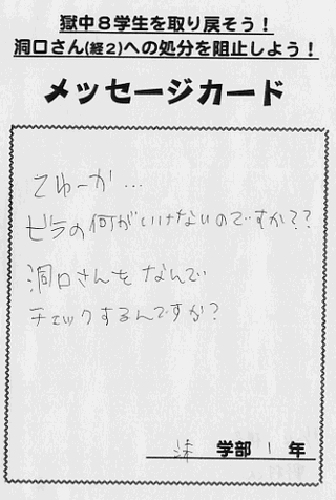 獄中8学生を取り戻そう！
洞口さん(経2)への処分を阻止しよう！
メッセージカード
てゆーか…
ビラの何がいけないのですか??
洞口さんをなんで
チェックするんですか?
法 学部 1 年